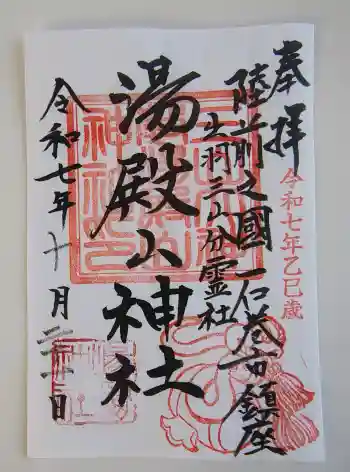 奉拝
令和七年乙巳歳
陸前之國 石巻市鎮座
出羽三山分霊社
湯殿山神社
令和七年十月二十三日